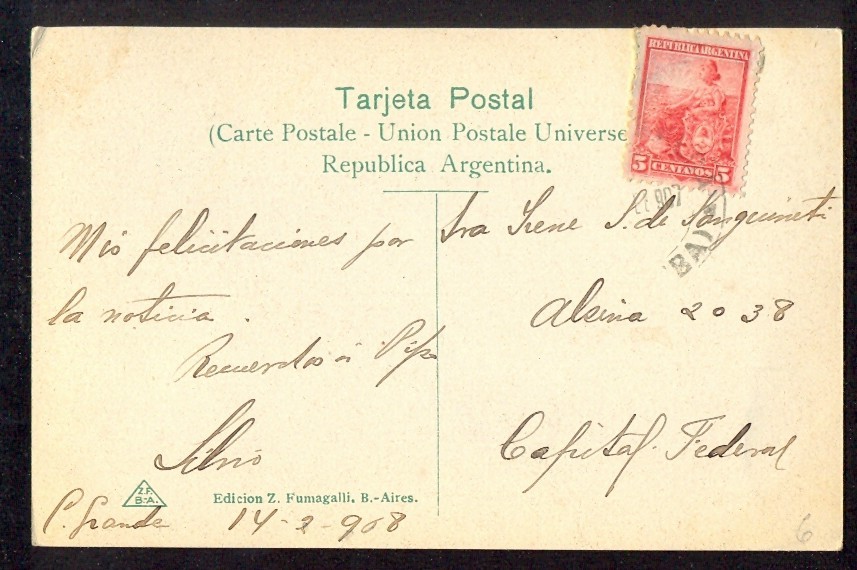 Tarjeta Postal
(Carte Postale - Union Postale Universe
Republica Argentina.
REPUBLICA ARGENTINA
5 CENTAVOS 5
907
BA)
Mis felicitaciones por
la noticia.
Recuerdos á
Silvio
C. Grande 14-2-908
Sra Irene S. de Sanguineti
Alsina 2038
Capital Federal
Z.F.
B-A.
Edicion Z. Fumagalli. B.-Aires.
6